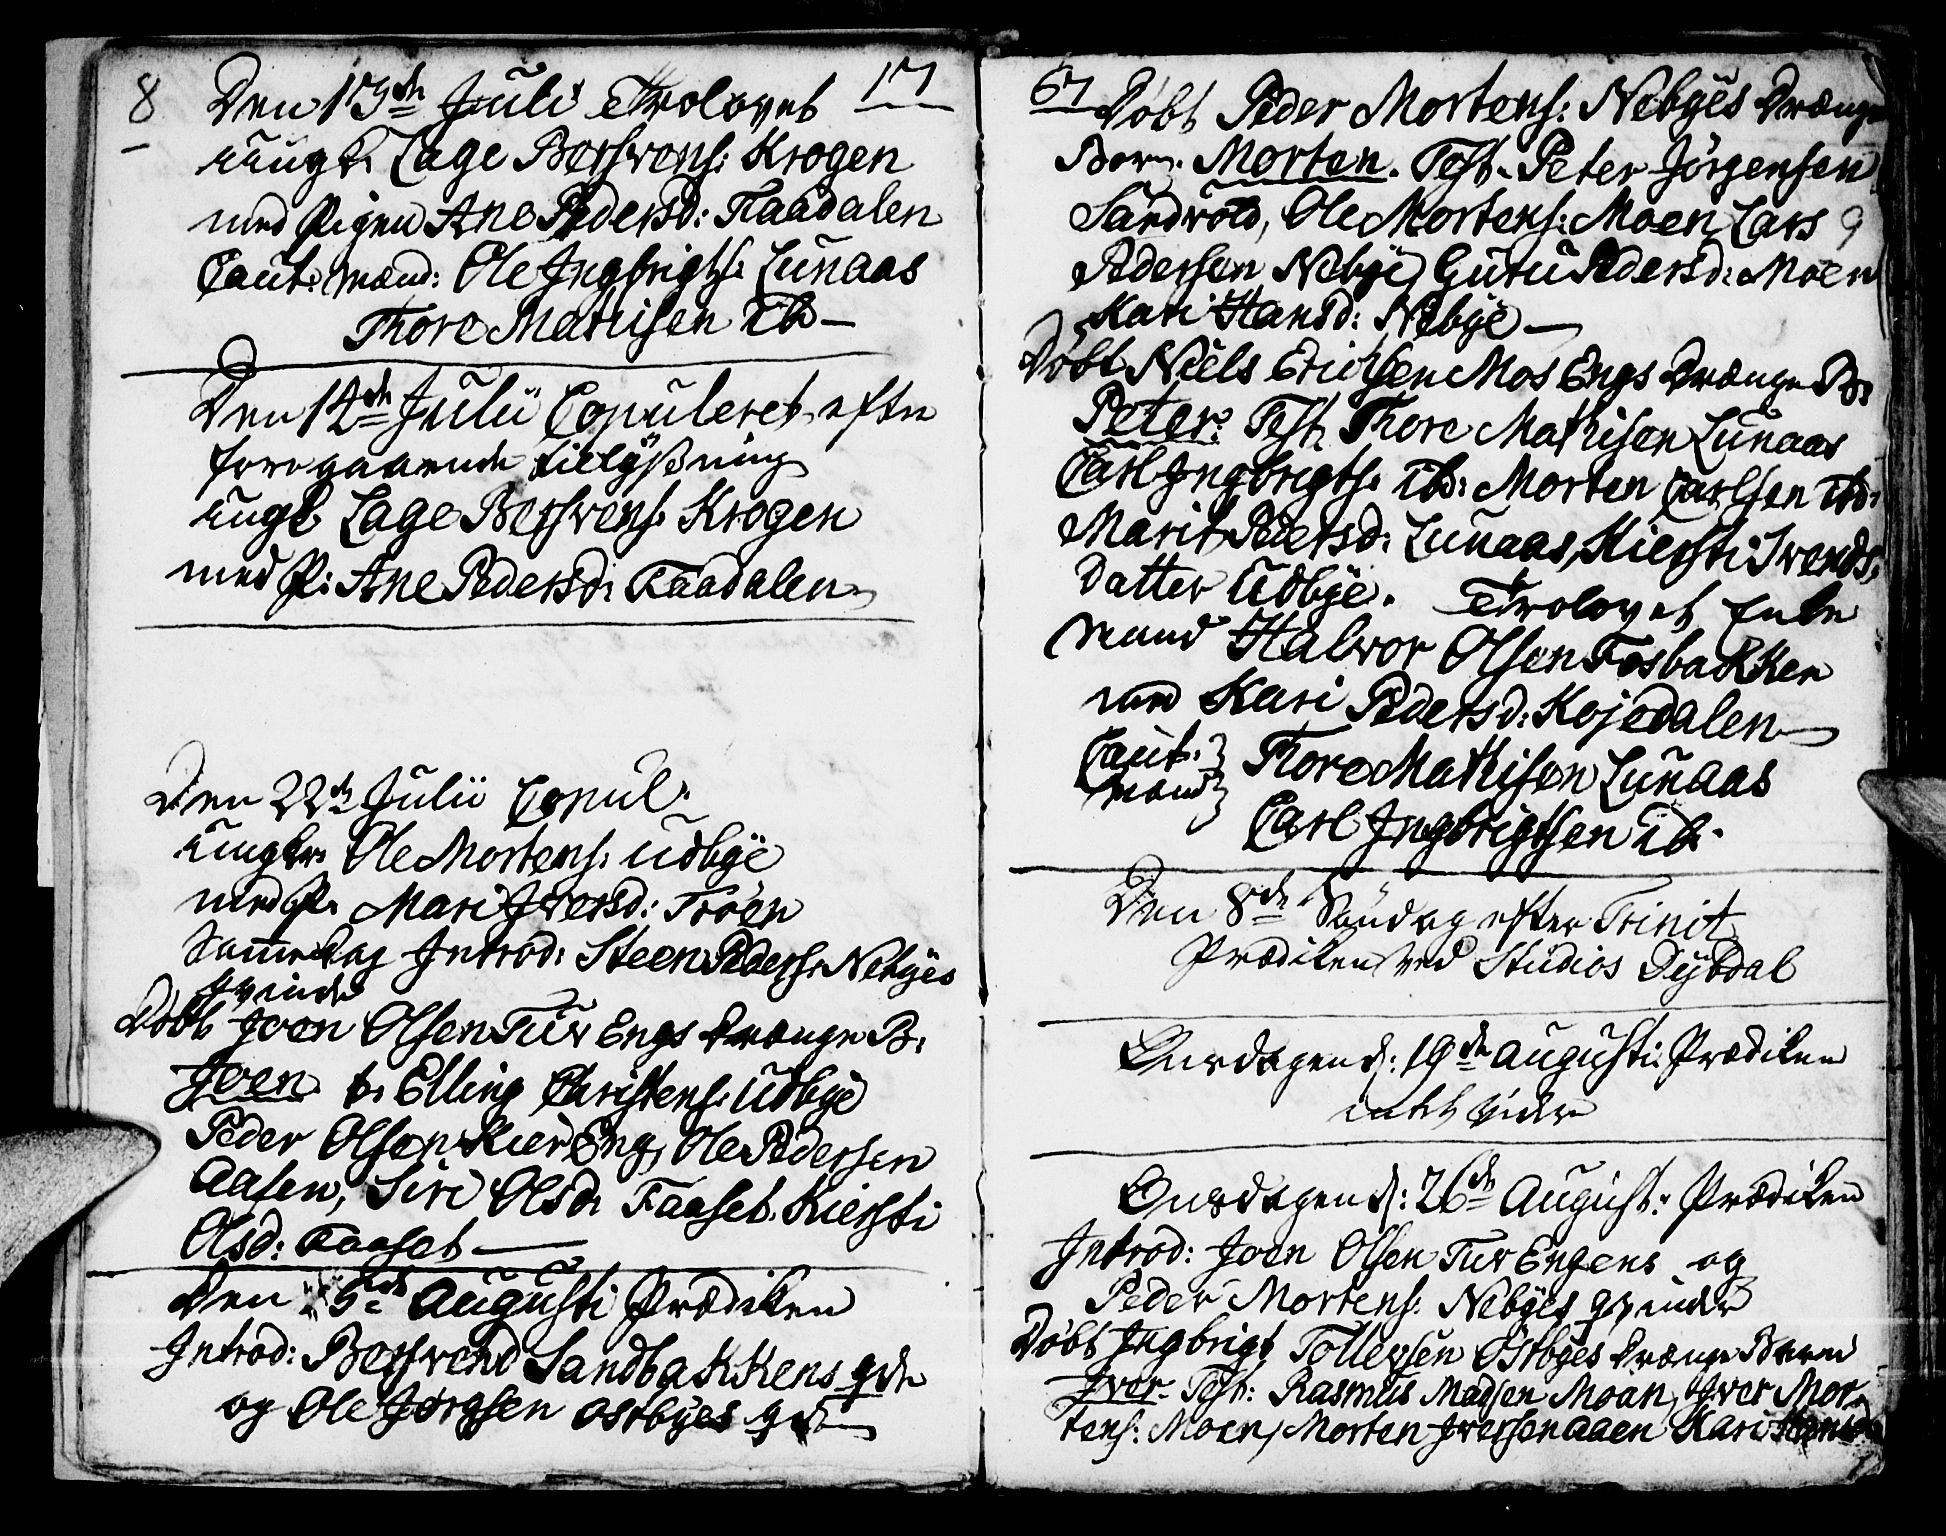 8 Den 13de Julii Trolovet 17
ungk. Lage Bersvens: Krogen
med Pigen Ane Pedersd: Kaadalen
Caut: Mænd: Ole Ingbrigts: Lunaas
Thore Mathisen Ib
Den 12de Julii Copuleret efter
foregaaende tillysning
ungk Lage Bersvens: Krogen
med P: Ane Pedersd: Kaadalen
Den 22de Julii Copul:
ungkr. Ole Mortens: Udbye
med P. Mari Iversd: Troen
Samme dag Introd: Steen Peders: Nebyes
qvinde
Døbt Joen Olsen Tur Engs Drænge B.
Joen. t. Elling Christens: Udbye
Peder Olsen Kier Eng, Ole Pedersen
Aasen, Siri Olsd: Faaset. Kiersti
Olsd: Faaset
Den 5te Augusti Prædiken
Introd: Bersvend Sandbakkens qde
og Ole Jørgsen Østbyes qde
67 Døbt Peder Mortens: Nebyes Drænge
Barn. Morten. Test. Peter Jörgensen
Sandvold, Ole Mortens: Moen, Lars 9
Pedersen Nebye, Guru Pedersd: Moen
Kari Hansd: Nebye
Døbt Niels Erichsen Mos Engs Drænge B:
Peter. Test. Thore Mathisen Lunaas
Carl Ingbrigts: Ibd: Morten Carlsen Ibd:
Marit Pedersd: Lunaas, Kiersti Svends
Datter Udbye. Trolovet Enke
Mand Halvor Olsen Fosbakken
med Kari Pedersd: Kojedalen
Caut: } Thore Mathisen Lunaas
Mænd } Carl Ingbrigtsen Ib.
Den 8de Søndag efter Trinit
Prædiken ved Studios Dybdal
Onsdagen d: 19de Augusti Prædiken
intet videre
Onsdagen d: 26de August: Prædiken
Introd: Joen Olsen Tur Engens og
Peder Mortens: Nebyes qvinder
Døbt Ingbrigt Tollevsen Östbyes Drænge Barn
Iver. Test: Rasmus Madsen Moan, Iver Mor-
tens: Moen, Morten Iversen Aaen Kari Hansd